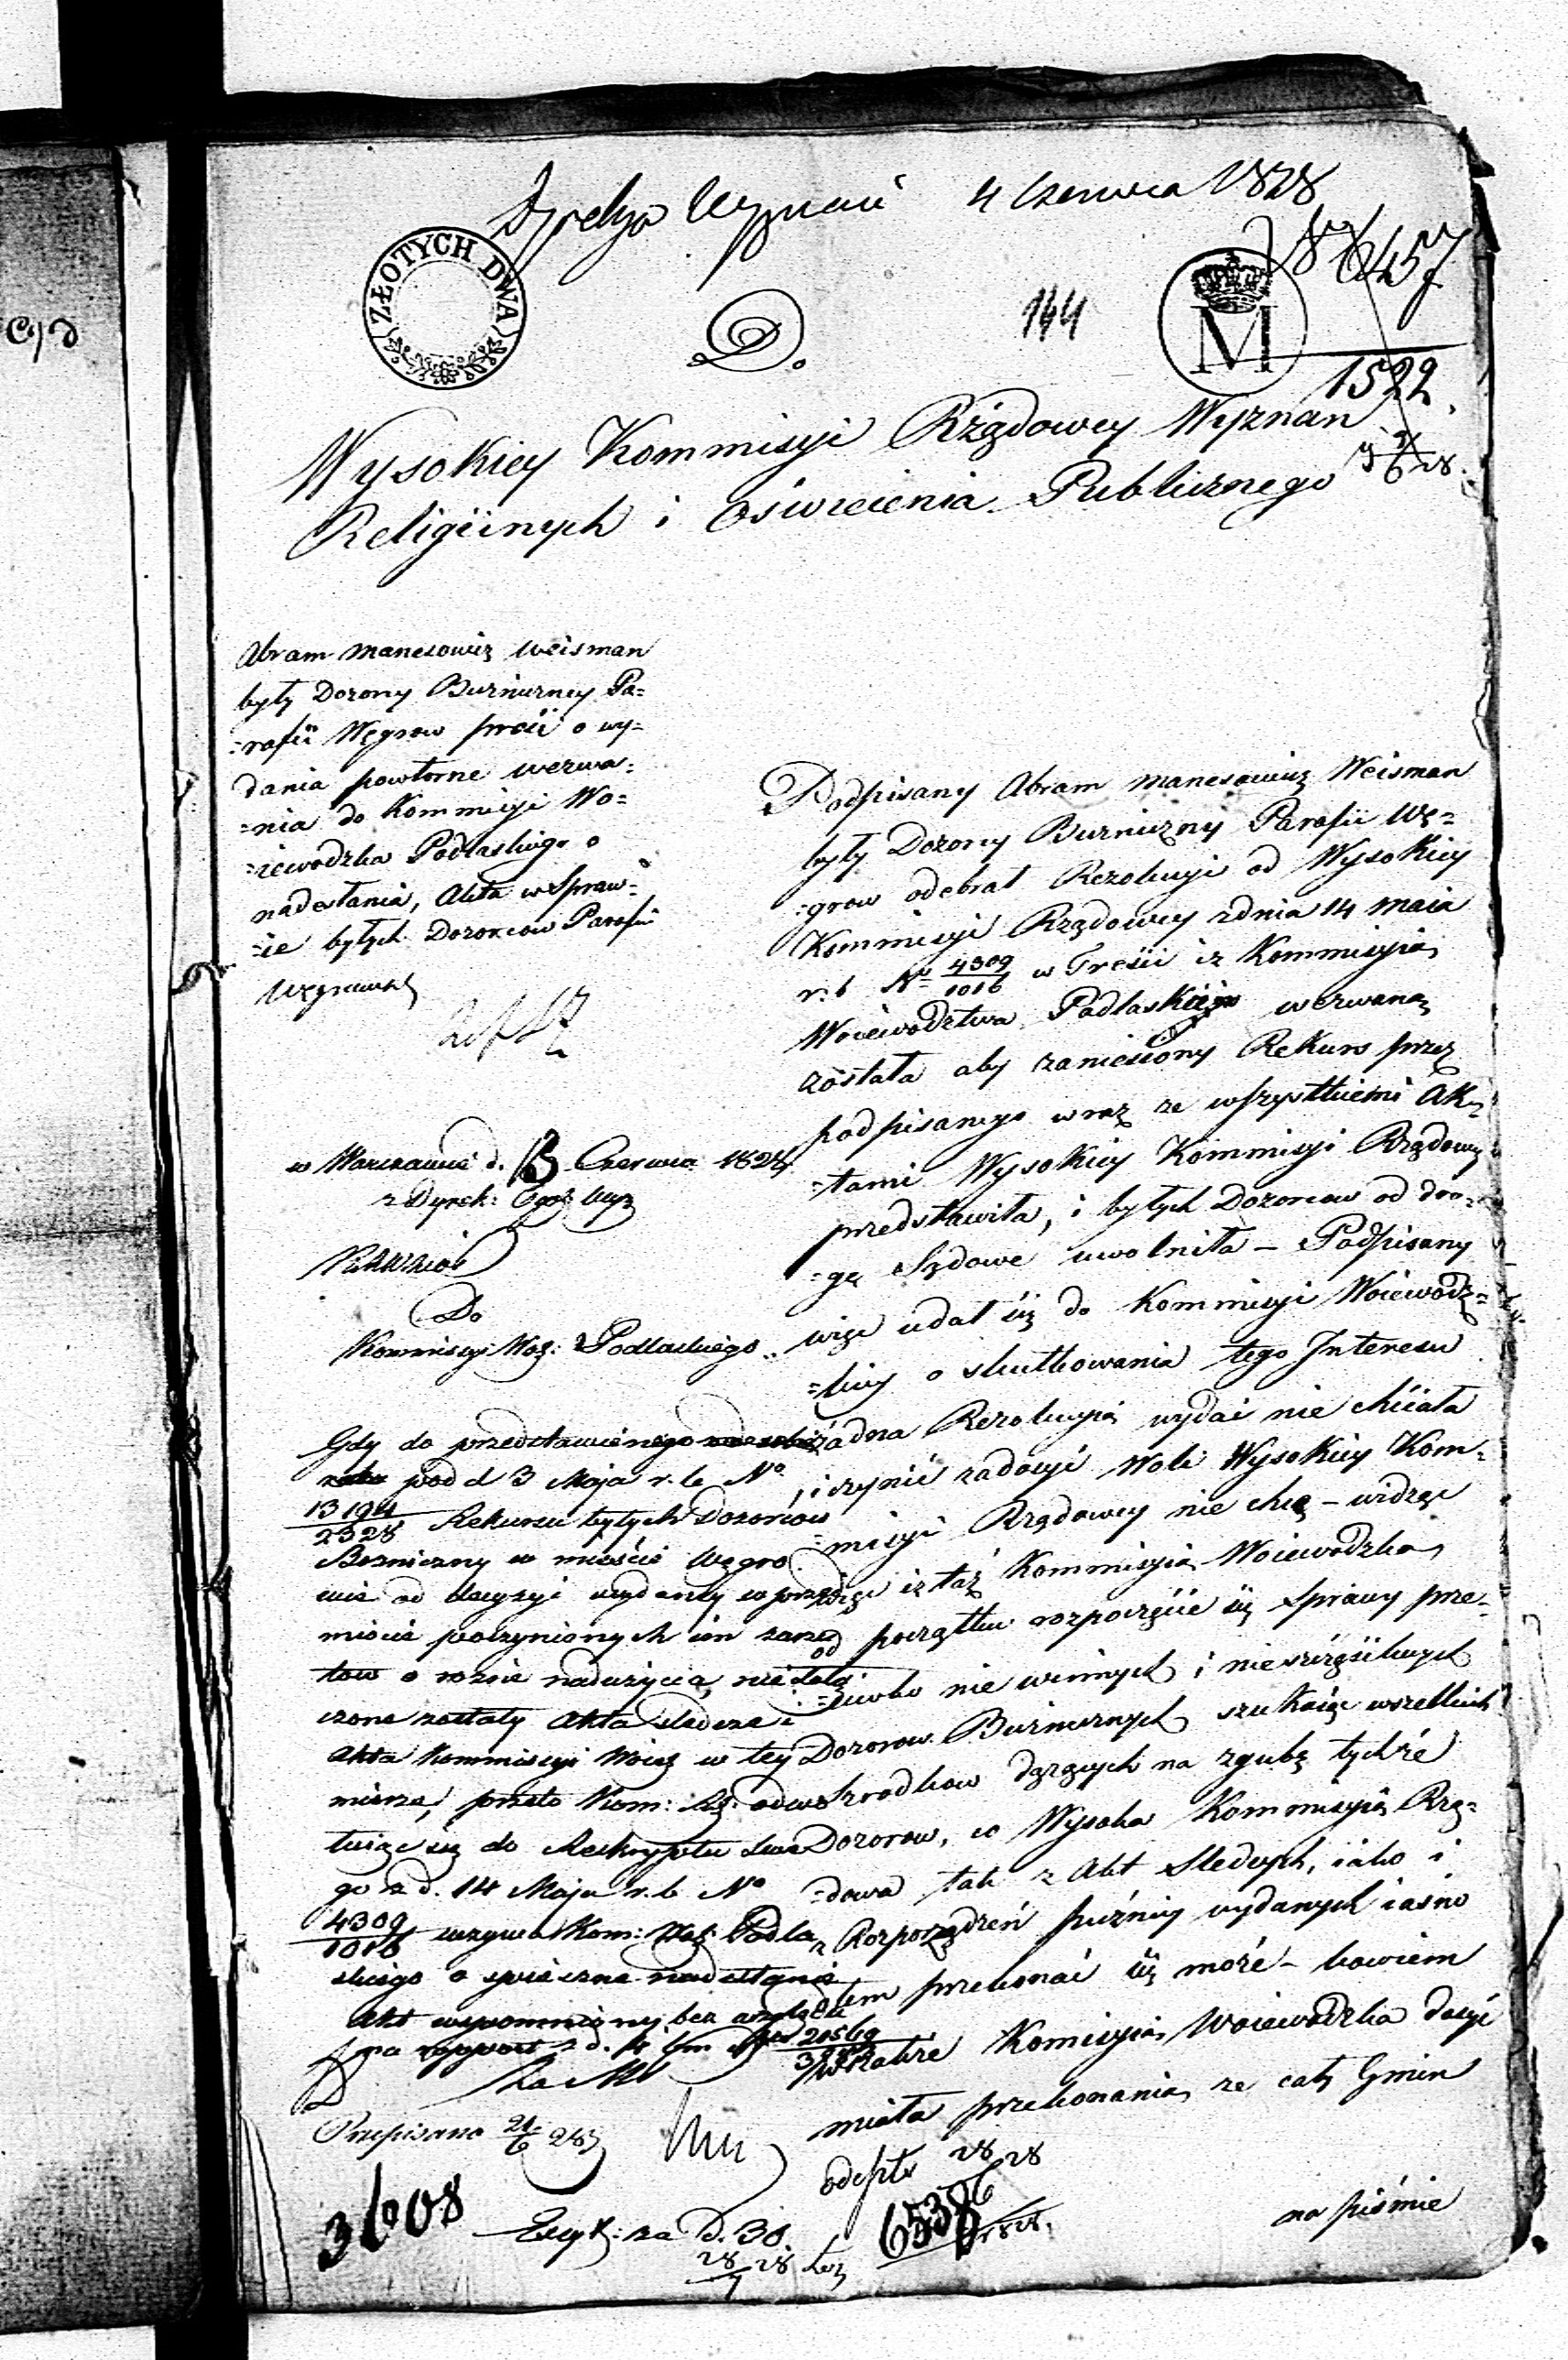 Dyrekcya Wyznań 4 Czerwca 1828
ZŁOTYCH DWA
Do.
144
M
457
1522
Wysokiey Kommisyi Rządowey Wyznan
Religiinych i Oświecenia Publicznego
Abram Manesowicz Weisman
były Dozorcy Burniczney Pa=
=rafii Węgrow prosi o wy=
dania powtorne wezwa=
=nia do Kommisyi Wo=
=iewodzka Podlaskiego o
nadesłania, Akta w Spraw=
=ie byłych Dozorcow Parafii
Węgrowskiey
w Warszawie d. 13 Czerwca 1828
z Dyrek:
Do
Kommisyi Woj: Podlaskiego
Gdy do przedstawionego
pod d 3 Maja r. b. No
13194
2328 Rekursu byłych Dozorców
Bozniczny w mieście Węgro
wie od decyzyi wydaney w przed
miocie poczynionych im zarzu
tow o rożne nadużycia, nie dołą
czone zostały Akta śledcze i
Akta Kommissyi Wojew w tey
mierze, przeto Kom: Rz: odwo
łuiąc się do Reskryptu swe
go z d. 14 Maja r. b. No
4309
1016 wzywa Kom: Woj: Podla
skiego o spieszne nadesłanie
Akt wspomniony bez
20569
Przepisano 21/6 28
3608
Exp: za D. 30
28/7 28
Podpisany Abram Manesowicz Weisman
były Dozorcy Burniczny Parafii Wę=
=grow odebrał Rezolucyi od Wysokiey
Kommisyi Rządowey z dnia 14 Maia
r. b No 4309/1016 w Treści iz Kommisyia
Woiewodztwa Podlaskiego wezwaną
została aby zaniesiony Rekurs przez
podpisanego wraz ze wszystkiemi Ak=
=tami Wysokiey Kommisyi Rządowy
przedstawiła, i byłych Dozorcow od dro=
=gę Sądowe uwolniła – Podpisany
więc udał się do Kommisyi Woiewodz=
=kiey o skutkowania tego Interesu
żadna Rezolucyia wydać nie chciała
, i czynić zadosyć Woli Wysokiey Kom=
=misyi Rządowey nie chcę – widząc
więc iz taż Kommisyia Woiewodzka
od początku rozpoczęcie się Sprawy prze=
=ciwko nie winnych i nieszczęśliwych
Dozorow Burnicznych szukaiąc wszelkich
srodkow dążących na zgubę tychże
Dozorow, co Wysoka Kommisyia Rzą=
=dowa tak z Akt Sledczych, iako i
z Rozporządzeń puźniey wydanych iasno
o tem przekonać się może – bowiem
wszakże Komisyia Woiewodzka dosyć
miała przekonania ze cały Gmin
odesłto 28 28
6538
na piśmie